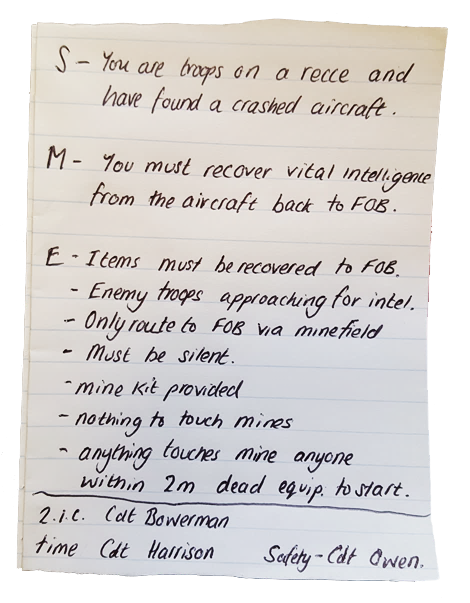 S - You are troops on a recce and
have found a crashed aircraft.
M - You must recover vital intelligence
from the aircraft back to FOB.
E - Items must be recovered to FOB.
- Enemy troops approaching for intel.
- Only route to FOB via minefield
- Must be silent.
- mine kit provided
- nothing to touch mines
- anything touches mine anyone
within 2m dead equip. to start.
2.i.c. Cdt Bowerman
time Cdt Harrison Safety - Cdt Owen.